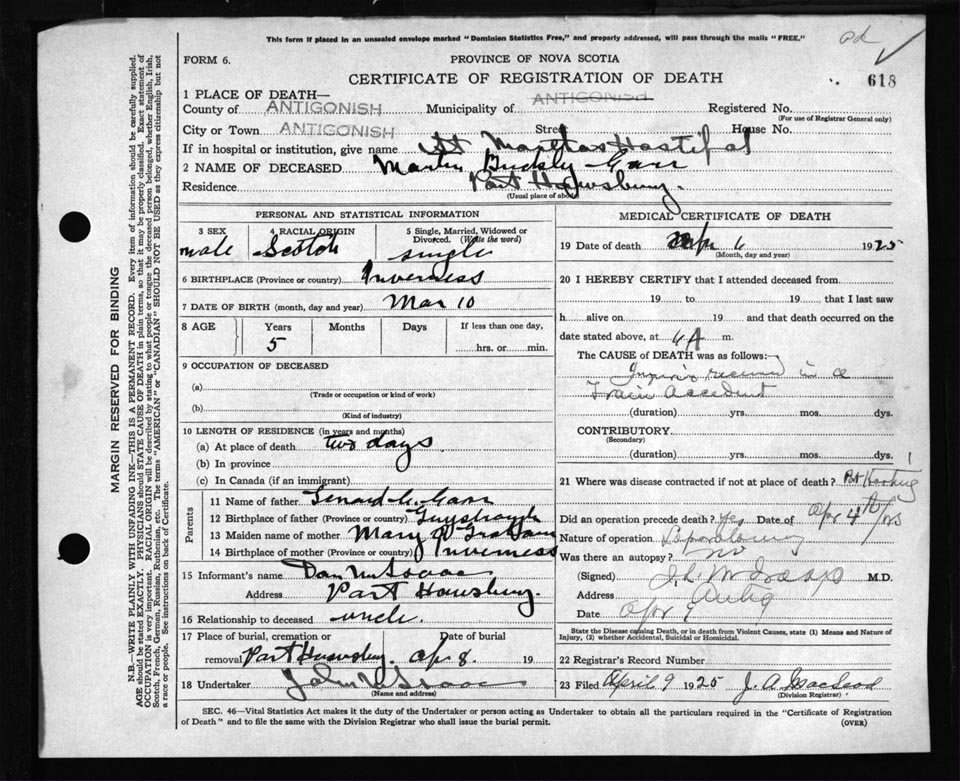 This form if placed in an unsealed envelope marked "Dominion Statistics Free," and properly addressed, will pass through the mails "FREE."
FORM 6.
PROVINCE OF NOVA SCOTIA
CERTIFICATE OF REGISTRATION OF DEATH
618
1 PLACE OF DEATH—
County of ANTIGONISH Municipality of ANTIGONISH Registered No.
(For use of Registrar General only)
City or Town ANTIGONISH Street House No.
If in hospital or institution, give name St Marthas Hostipal
2 NAME OF DECEASED Martin Buckly
Residence Port Hawsbury.
(Usual place of abode)
PERSONAL AND STATISTICAL INFORMATION
3 SEX 4 RACIAL ORIGIN 5 Single, Married, Widowed or Divorced. (Write the word)
male Scotch single
6 BIRTHPLACE (Province or country) Inverness
7 DATE OF BIRTH (month, day and year) Mar 10
8 AGE Years Months Days If less than one day,
5 hrs. or min.
9 OCCUPATION OF DECEASED
(a)
(Trade or occupation or kind of work)
(b)
(Kind of industry)
10 LENGTH OF RESIDENCE (in years and months)
(a) At place of death two days
(b) In province
(c) In Canada (if an immigrant)
Parents
11 Name of father
12 Birthplace of father (Province or country)
13 Maiden name of mother Mary
14 Birthplace of mother (Province or country) Inverness
15 Informant's name Dan
Address Port Hawsbury.
16 Relationship to deceased uncle
17 Place of burial, cremation or removal Date of burial
Apr 8. 19
18 Undertaker John
(Name and address)
MEDICAL CERTIFICATE OF DEATH
19 Date of death Apr 6 1925
(Month, day and year)
20 I HEREBY CERTIFY that I attended deceased from
19 to 19 that I last saw
h alive on 19 and that death occurred on the
date stated above, at m.
The CAUSE of DEATH was as follows:
received in a
Train Accident
(duration) yrs. mos. dys.
CONTRIBUTORY
(Secondary)
(duration) yrs. mos. dys.
21 Where was disease contracted if not at place of death?
Did an operation precede death? Yes Date of Apr 4th
Nature of operation
Was there an autopsy? No
(Signed) M.D.
Address Antig
Date Apr 9
State the Disease causing Death, or in death from Violent Causes, state (1) Means and Nature of Injury, (2) whether Accidental, Suicidal or Homicidal.
22 Registrar's Record Number
23 Filed April 9 1925 J. A.
(Division Registrar)
SEC. 46—Vital Statistics Act makes it the duty of the Undertaker or person acting as Undertaker to obtain all the particulars required in the "Certificate of Registration
of Death" and to file the same with the Division Registrar who shall issue the burial permit.
(OVER)
MARGIN RESERVED FOR BINDING
N.B.—WRITE PLAINLY WITH UNFADING INK—THIS IS A PERMANENT RECORD. Every item of information should be carefully supplied.
AGE should be stated EXACTLY. PHYSICIANS should STATE CAUSE OF DEATH in plain terms, so that it may be properly classified. Exact statement of
OCCUPATION is very important. RACIAL ORIGIN will be described by stating to what people or tongue the deceased person belonged, whether English, Irish,
Scotch, French, German, Russian, Ruthenian, etc. The terms "AMERICAN" or "CANADIAN" SHOULD NOT BE USED as they express citizenship but not
a race or people. See instructions on back of Certificate.